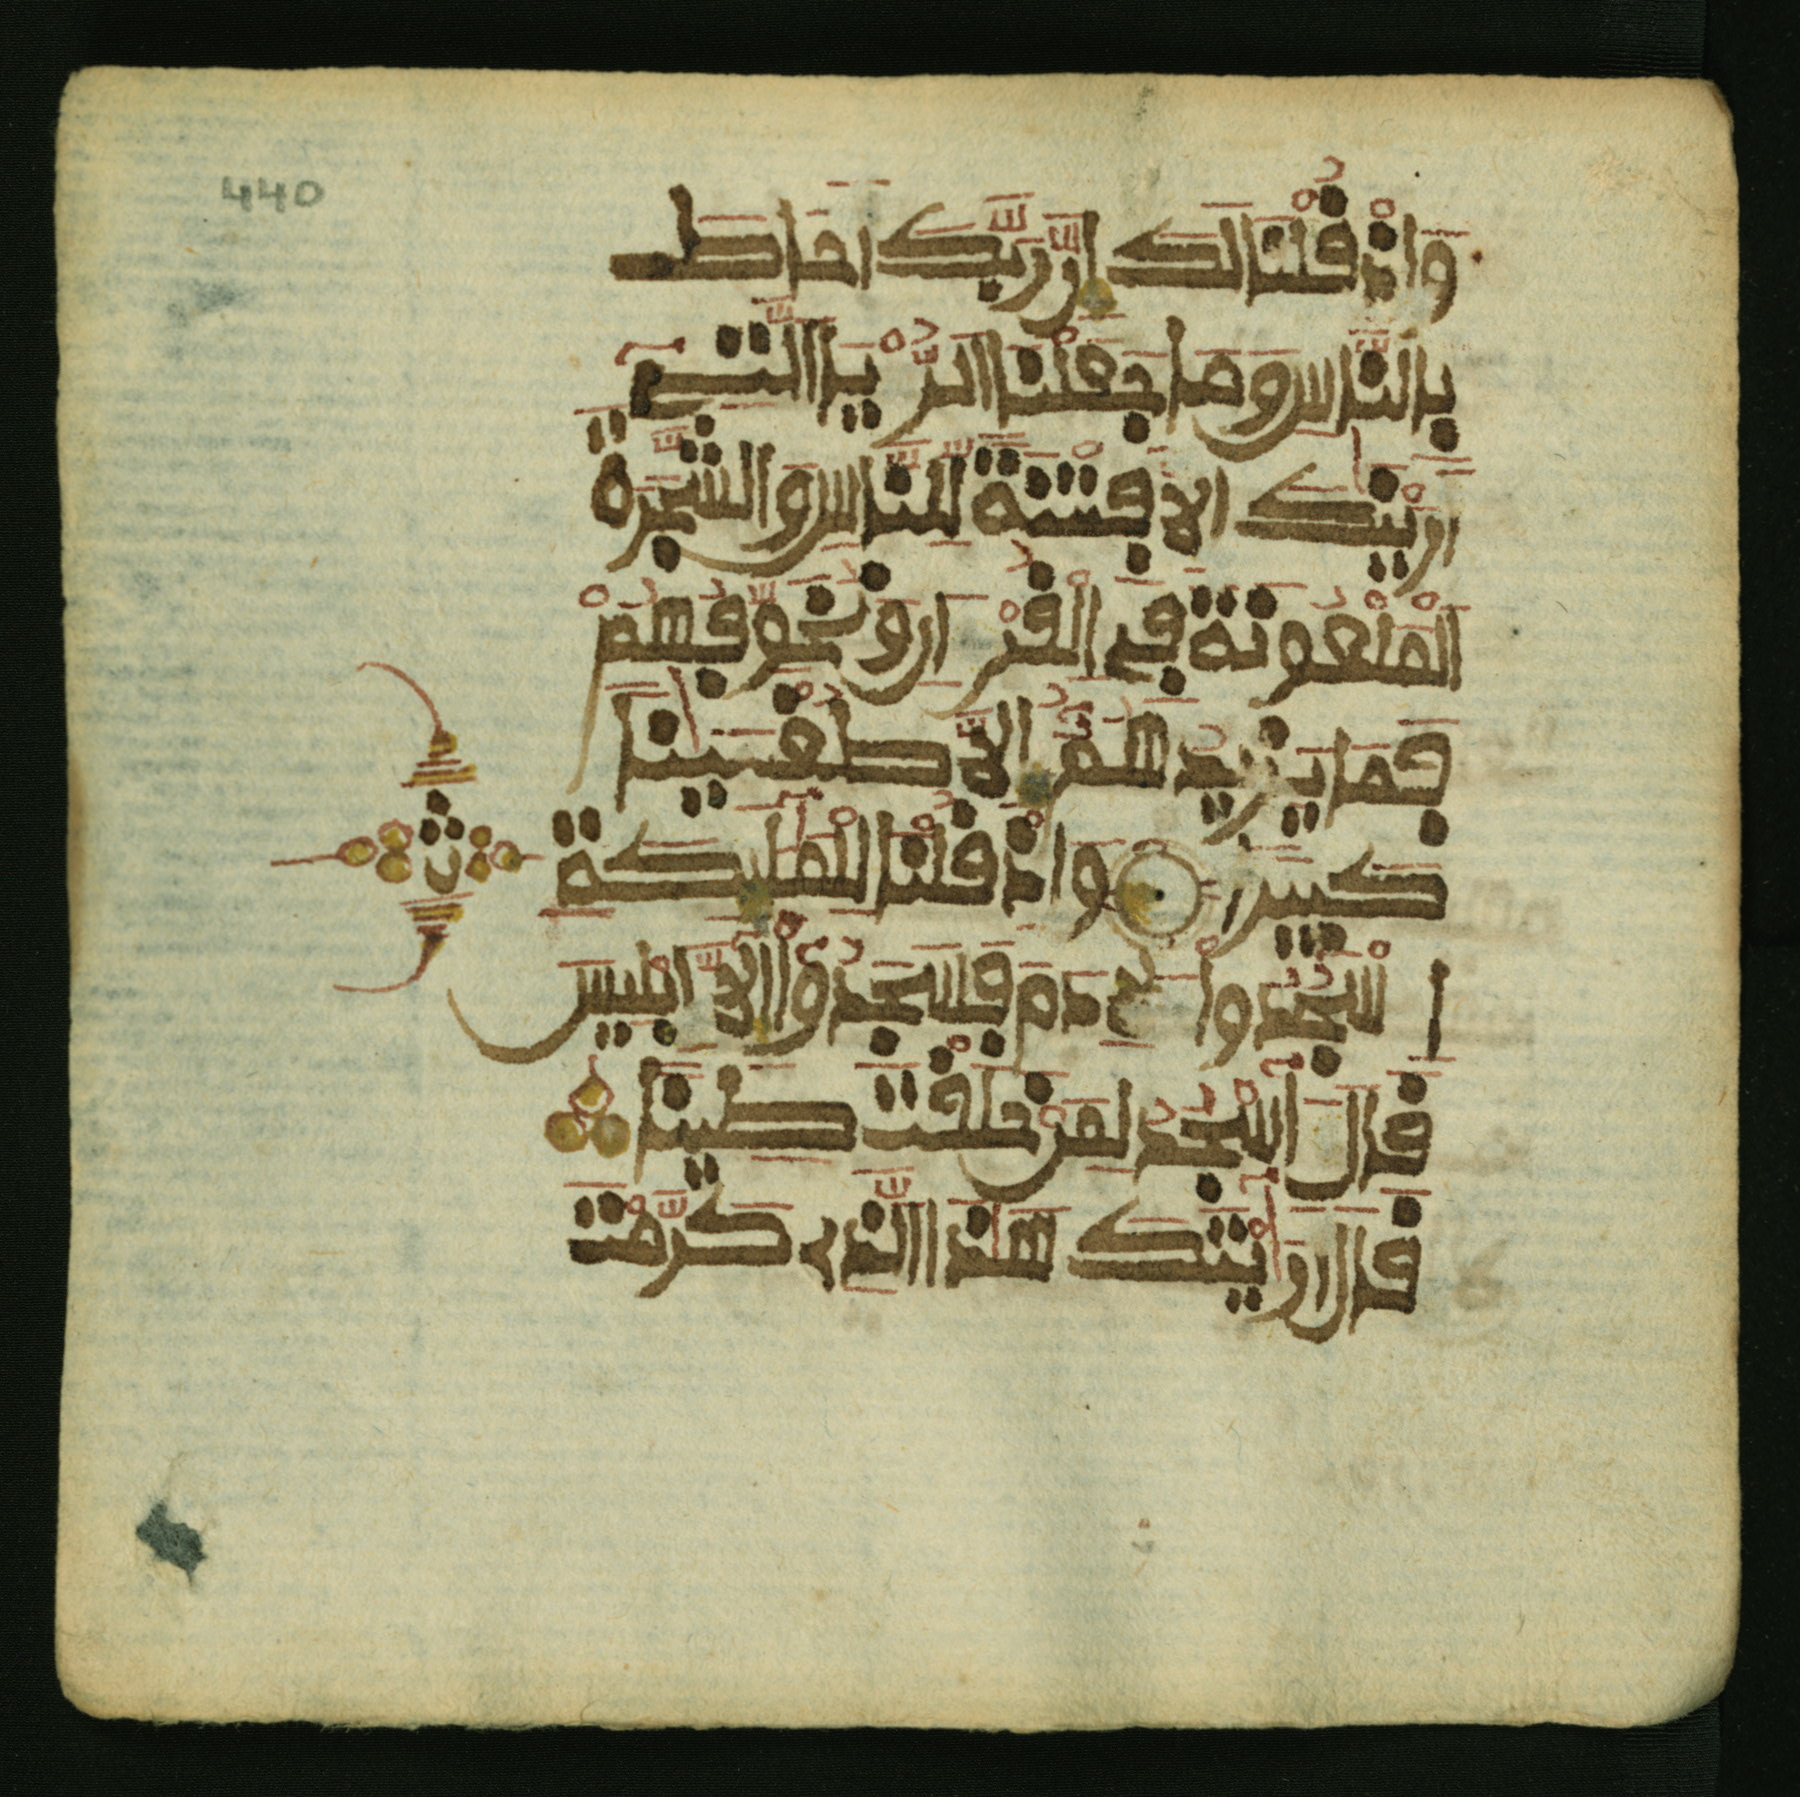 440
واذ قلنا لك ان ربك احاط
بالناس وما جعلنا الريا التے
ارينك الا فتنة للناس والشجرة
الملعونة في القران ونخوفهم
فما يزيدهم الا طغينا
كبيرا واذ قلنا للمليكة
اسجدوا لادم فسجدوا الا ابليس
قال اسجد لمن خلقت طينا
قال اريتك هذا الذي كرمت